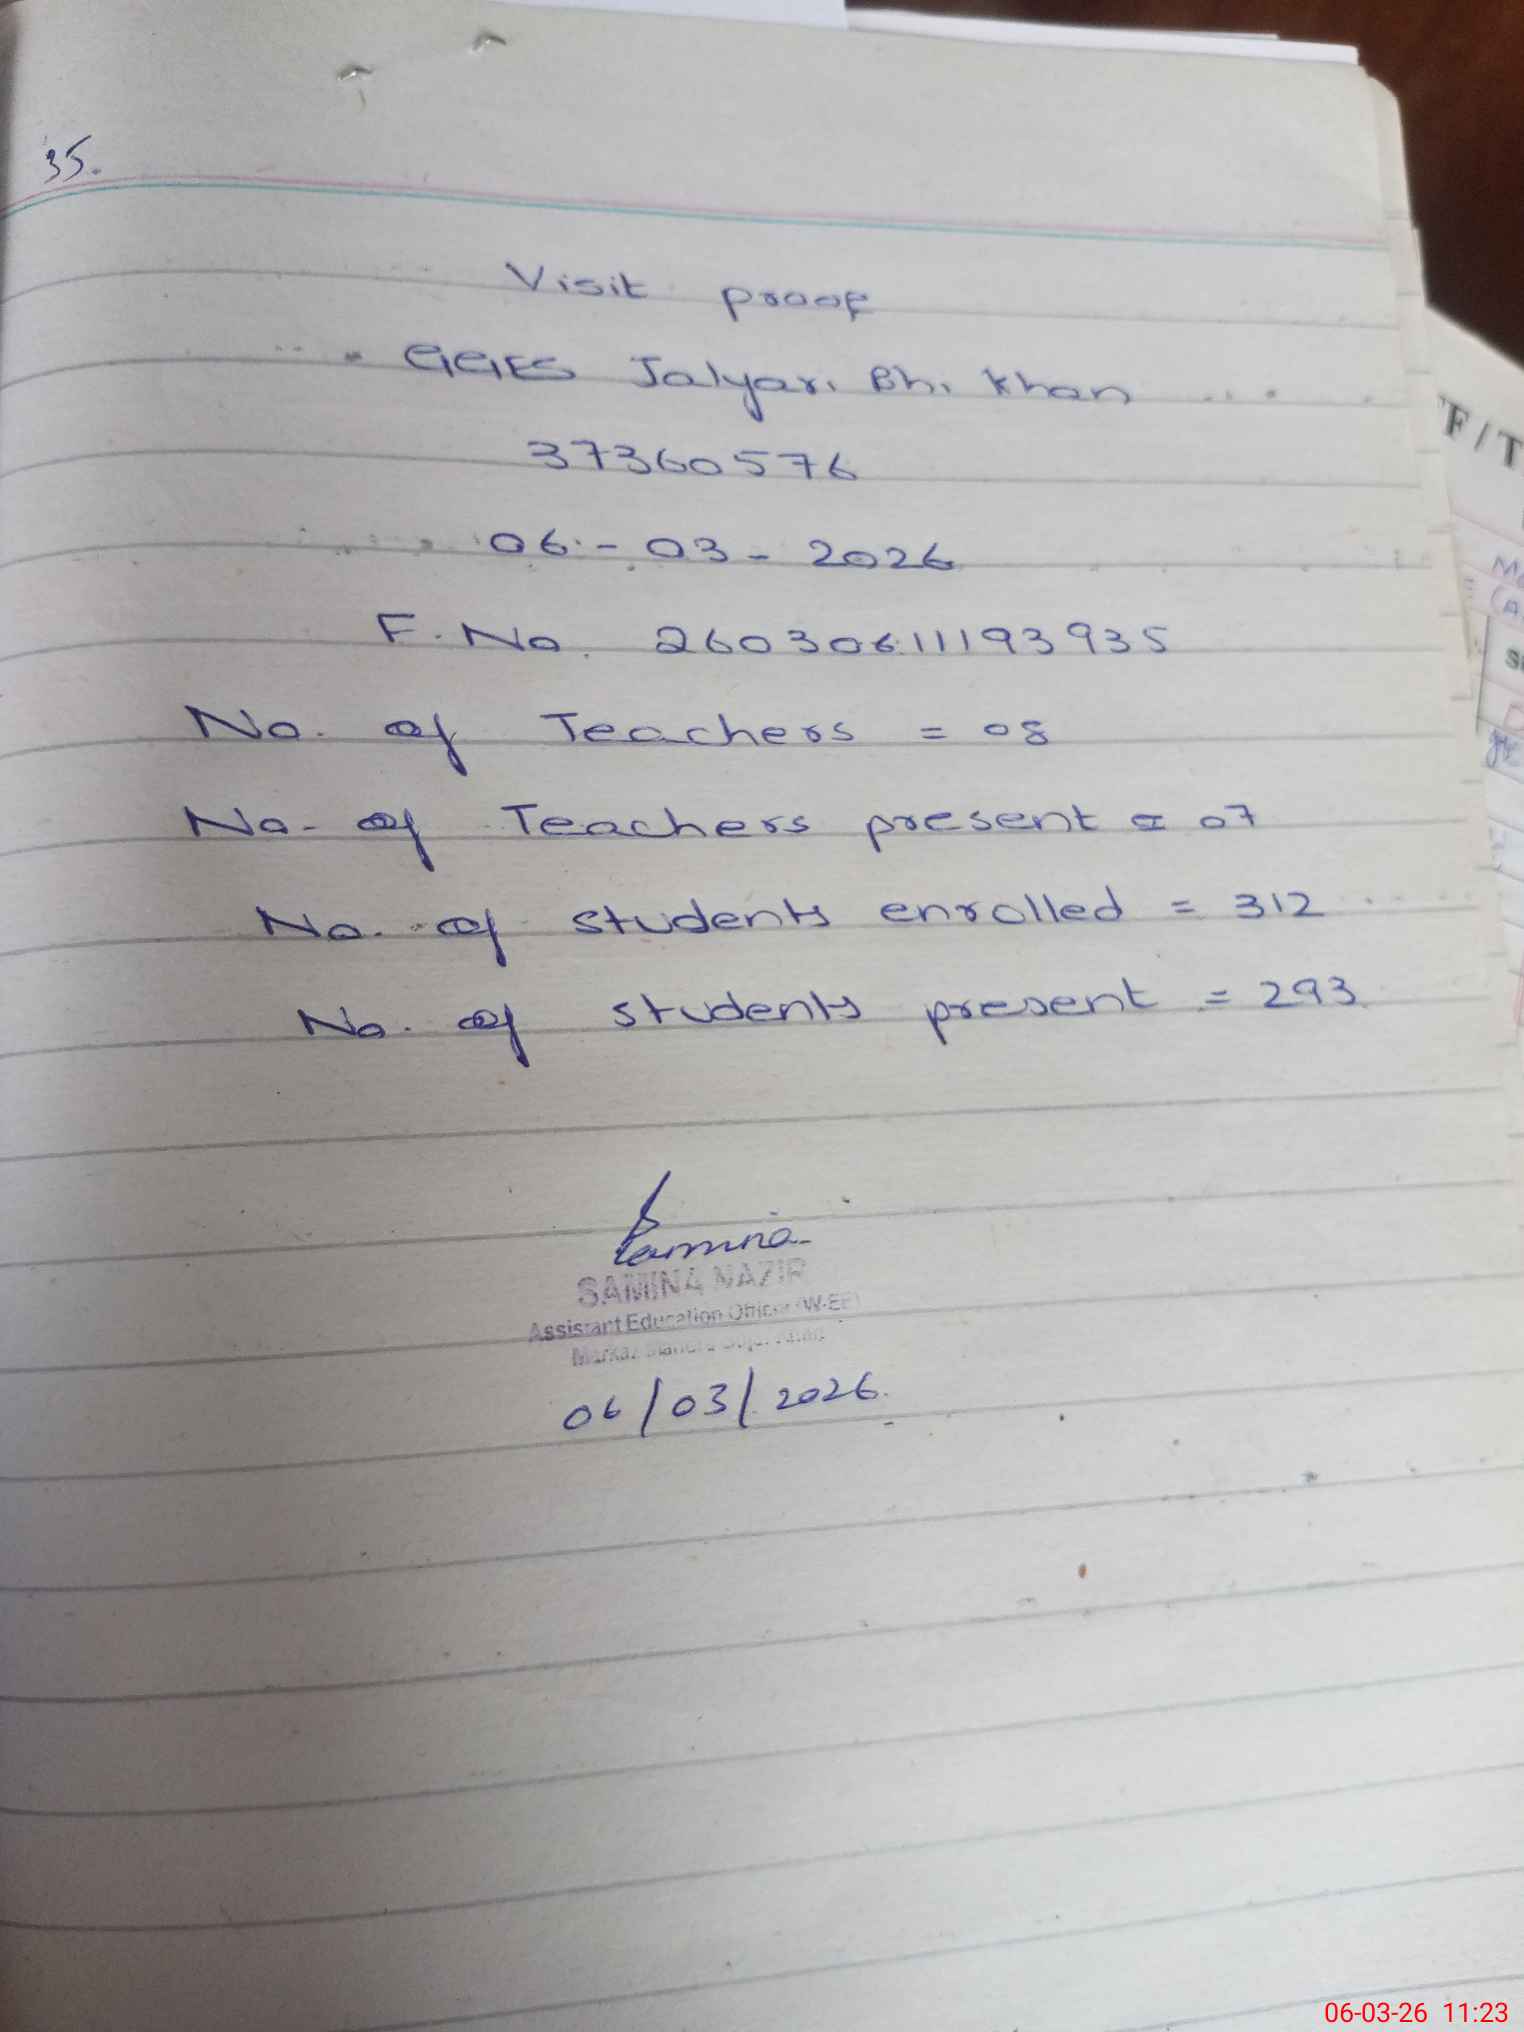 35.
Visit proof
GGES Jalyari Bh. Khan
37360576
06 - 03 - 2026
F. No. 26030611193935
No. of Teachers = 08
No. of Teachers present = 07
No. of students enrolled = 312
No. of students present = 293
Samina
SAMINA NAZIR
Assistant Education Officer (W-EE)
Markaz
06/03/2026.
06-03-26 11:23